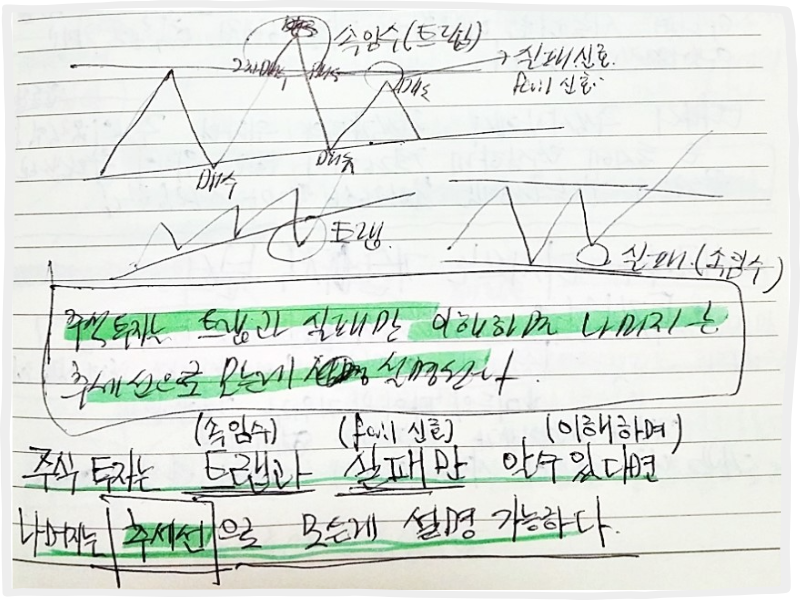 속임수(트랩)
실패 신호.
fail 신호.
매수
매도
트랩.
실패.(속임수)
주식투자는 트랩과 실패만 이해하면 나머지는
추세선으로 모든게 설명된다.
(속임수) (fail 신호) (이해하며)
주식 투자는 트랩과 실패만 알수 있다면
나머지는 추세선으로 모든게 설명 가능하다.